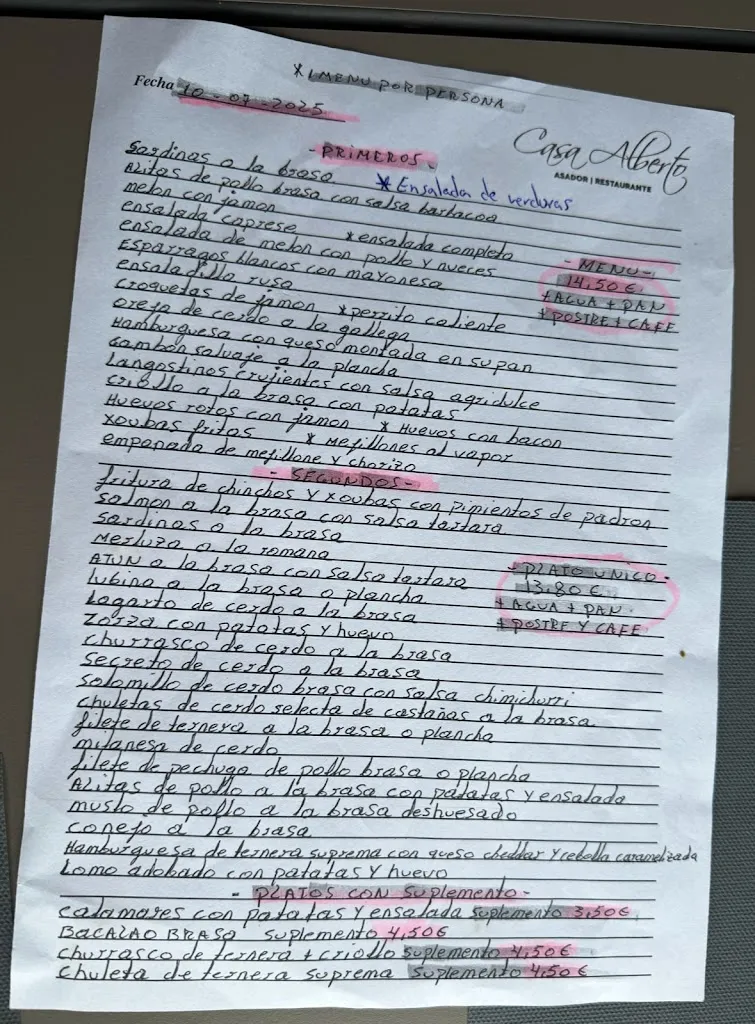 * 1 MENU POR PERSONA
Fecha 10-07-2025
Casa Alberto
ASADOR | RESTAURANTE
- PRIMEROS -
Sardinas a la brasa
Alitas de pollo brasa con salsa barbacoa
* Ensalada de verduras
melon con jamon
ensalada caprese * ensalada completo
ensalada de melon con pollo y nueces
Esparragos blancos con mayonesa
ensaladilla rusa
croquetas de jamon * perrito caliente
oreja de cerdo a la gallega
Hamburguesa con queso montada en su pan
Gambon salvaje a la plancha
Langostinos crujientes con salsa agridulce
criollo a la brasa con patatas
Huevos rotos con jamon * Huevos con bacon
xoubas fritas * Mejillones al vapor
empanada de mejillone y chorizo
- MENU -
14,50 €
+ AGUA + PAN
+ POSTRE + CAFE
- SEGUNDOS -
fritura de chinchos y xoubas con pimientos de padron
salmon a la brasa con salsa tartara
sardinas a la brasa
Merluza a la romana
ATUN a la brasa con salsa tartara
lubina a la brasa o plancha
Lagarto de cerdo a la brasa
Zorza con patatas y huevo
churrasco de cerdo a la brasa
secreto de cerdo a la brasa
solomillo de cerdo brasa con salsa chimichurri
chuletas de cerdo selecta de castañas a la brasa
filete de ternera a la brasa o plancha
milanesa de cerdo
filete de pechuga de pollo brasa o plancha
Alitas de pollo a la brasa con patatas y ensalada
muslo de pollo a la brasa deshuesado
conejo a la brasa
Hamburguesa de ternera suprema con queso cheddar y cebolla caramelizada
Lomo adobado con patatas y huevo
- PLATO UNICO -
13.80 €
+ AGUA + PAN
+ POSTRE Y CAFE
- PLATOS CON Suplemento -
calamares con patatas y ensalada suplemento 3,50€
BACALAO BRASA suplemento 4,50€
churrasco de ternera + criollo suplemento 4,50€
chuleta de ternera suprema suplemento 4,50€